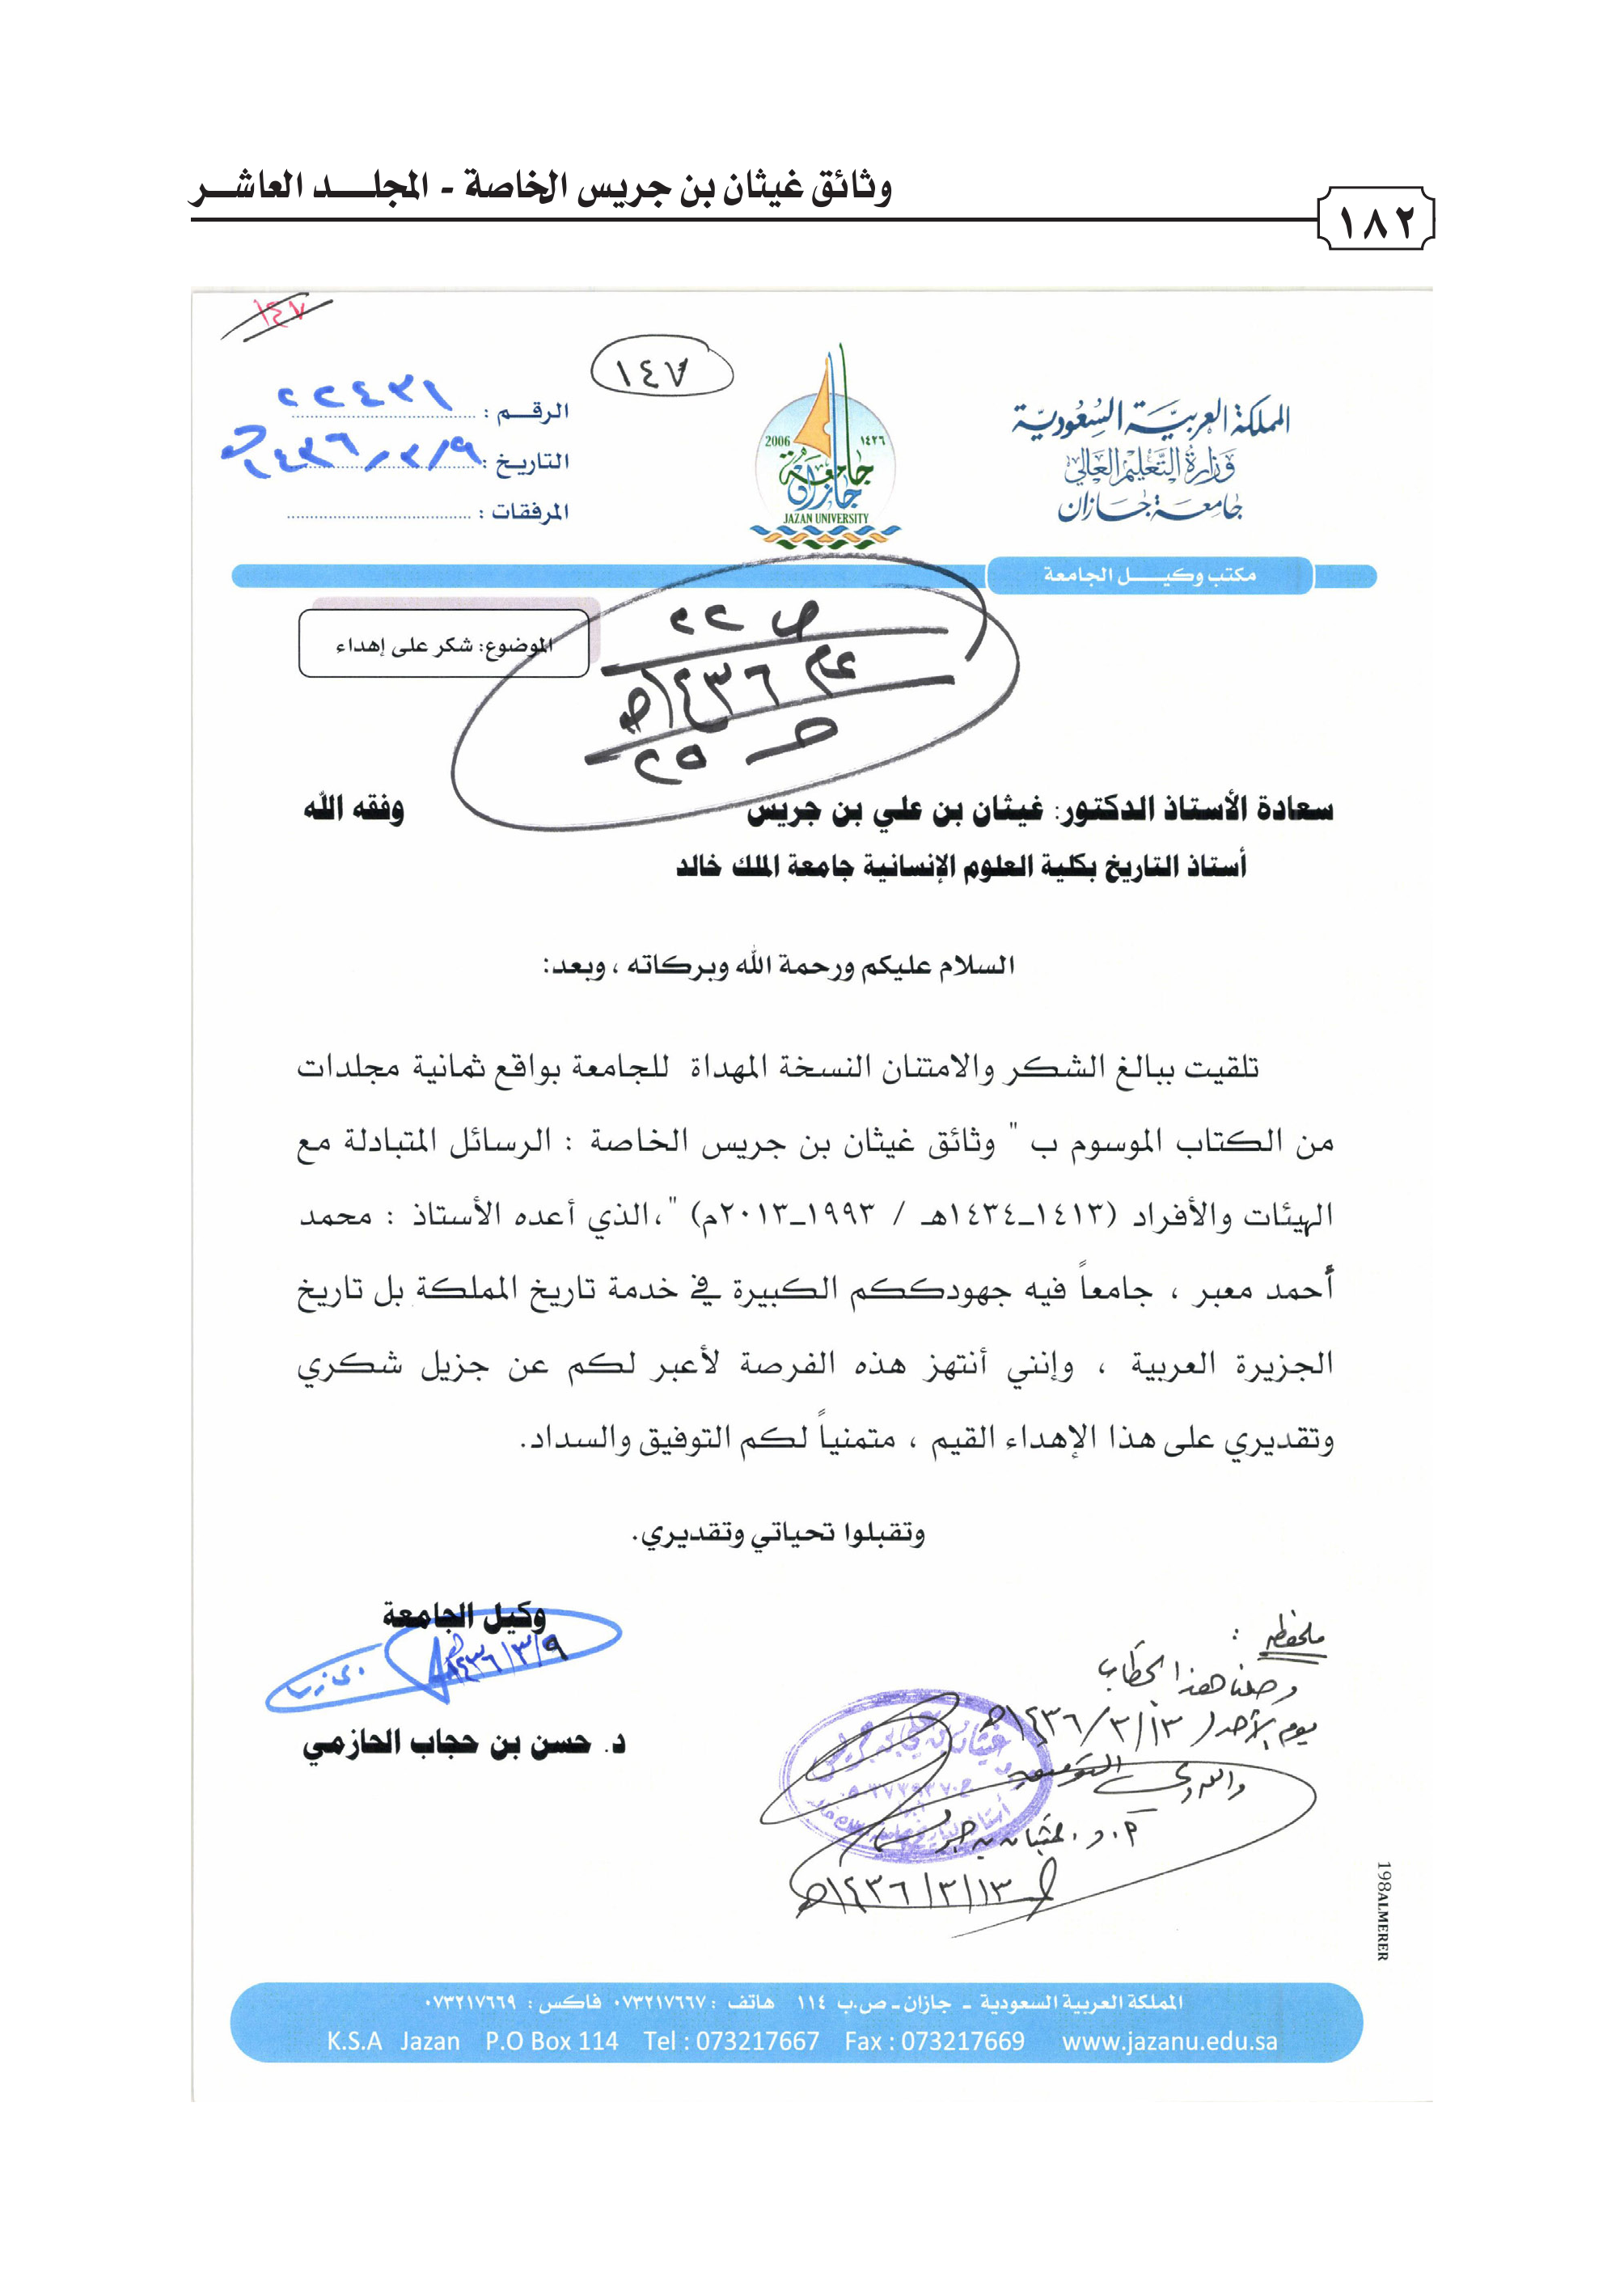 وثائق غيثان بن جريس الخاصة - المجلد العاشر
١٨٢
١٤٧
١٤٧
المملكة العربية السعودية
وزارة التعليم العالي
جامعة جازان
2006 ١٤٢٦
جامعة جازان
JAZAN UNIVERSITY
الرقم : ٢٢٤٣١
التاريخ : ١٤٣٦/٣/٩هـ
المرفقات :
مكتب وكيل الجامعة
الموضوع: شكر على إهداء
ص ٢٢
١٤٣٦هـ
٢٥
سعادة الأستاذ الدكتور: غيثان بن علي بن جريس وفقه الله
أستاذ التاريخ بكلية العلوم الإنسانية جامعة الملك خالد
السلام عليكم ورحمة الله وبركاته ، وبعد:
تلقيت ببالغ الشكر والامتنان النسخة المهداة للجامعة بواقع ثمانية مجلدات
من الكتاب الموسوم ب " وثائق غيثان بن جريس الخاصة : الرسائل المتبادلة مع
الهيئات والأفراد (١٤١٣ـ١٤٣٤هـ / ١٩٩٣ـ٢٠١٣م) "،الذي أعده الأستاذ : محمد
أحمد معبر ، جامعاً فيه جهودككم الكبيرة في خدمة تاريخ المملكة بل تاريخ
الجزيرة العربية ، وإنني أنتهز هذه الفرصة لأعبر لكم عن جزيل شكري
وتقديري على هذا الإهداء القيم ، متمنياً لكم التوفيق والسداد.
وتقبلوا تحياتي وتقديري.
وكيل الجامعة
١٤٣٦/٣/٩هـ
د. حسن بن حجاب الحازمي
ملحوظة :
وصلنا هذا الخطاب
يوم الأحد ١٤٣٦/٣/١٣هـ
والله ولي التوفيق
أ. د. غيثان بن جريس
١٤٣٦/٣/١٣هـ
198ALMERER
المملكة العربية السعودية ـ جازان ـ ص.ب ١١٤ هاتف : ٠٧٣٢١٧٦٦٧ فاكس : ٠٧٣٢١٧٦٦٩
K.S.A Jazan P.O Box 114 Tel : 073217667 Fax : 073217669 www.jazanu.edu.sa